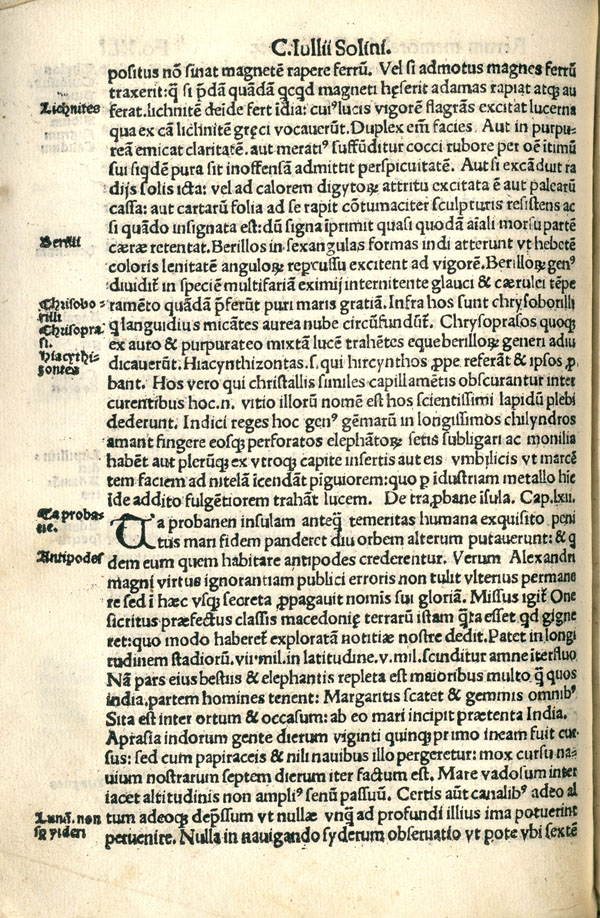 C. Iulii Solini.
positus nō sinat magnetē rapere ferrū. Vel si admotus magnes ferrū
traxerit: q̄ si p̄dā quādā qcqd magneti hęserit adamas rapiat atqꝫ au
Lichnites
ferat. lichnitē deide fert īdia: cuiꝰ lucis vigorē flagrās excitat lucerna
qua ex cā lichnitē gręci vocauerūt. Duplex em̄ facies. Aut in purpu-
reā emicat claritatē. aut meratiꝰ suffūditur cocci rubore per oē ītimū
sui siqdē pura sit inoffensā admittit perspicuitatē. Aut si excāduit ra
dijs solis icta: vel ad calorem digytoꝝ attritu excitata ē aut palearū
cassa: aut cartarū folia ad se rapit cōtumaciter sculpturis resistens ac
si quādo insignata est: dū signa īprimit quasi quodā aīali morsu partē
Berilli
cæræ retentat. Berillos in sexangulas formas indi atterunt vt hebetē
coloris lenitatē anguloꝝ repcussu excitent ad vigorē. Berilloꝝ genꝰ
diuidit̄ in speciē multifariā eximij internitente glauci & cærulei tēpe
Chrisobo-
rilli
ramēto quādā p̄ferūt puri maris gratiā. Infra hos sunt chrysoborilli
Chrisopra
si.
q̄ languidiꝰ micātes aurea nube circūfundūt̄. Chrysoprasos quoqꝫ
Hiacythi-
zontes
ex auro & purpurateo mixtā lucē trahētes eque berilloꝝ generi adiu
dicauerūt. Hiacynthizontas .s. qui hircynthos ꝓpe referāt & ipsos ꝓ
bant. Hos vero qui christallis similes capillamētis obscurantur inter
curentibus hoc .n. vitio illorū nomē est hos scientissimi lapidū plebi
dederunt. Indici reges hoc genꝰ gēmarū in longissimos chilyndros
amant fingere eosqꝫ perforatos elephātoꝝ setis subligari ac monilia
habēt aut plerūqꝫ ex vtroqꝫ capite insertis aut eis vmbilicis vt marcē
tem faciem ad nitelā īcendāt piguiorem: quo p īdustriam metallo hic
īde addito fulgētiorem trahāt lucem. De traꝓbane īsula. Cap. lxii.
Taproba-
ne.
Ta probanen insulam anteq̄ temeritas humana exquisito peni
tus mari fidem panderet diu orbem alterum putauerunt: & q̄
Antipodes
dem eum quem habitare antipodes crederentur. Verum Alexandri
magni virtus ignorantiam publici erroris non tulit vlterius permane
re sed ī hæc vsqꝫ secreta ꝓpagauit nomīs sui gloriā. Missus igit̄ One
sicritus præfectus classis macedonię terrarū istam q̄ta esset qd gigne
ret: quo modo haberet̄ exploratā notitiæ nostre dedit. Patet in longi
tudinem stadiorū .vii. mil. in latitudine .v. mil. scinditur amne īterfluo
Nā pars eius bestiis & elephantis repleta est maioribus multo q̄ quos
india, partem homines tenent: Margaritis scatet & gemmis omnibꝰ
Sita est inter ortum & occasum: ab eo mari incipit prætenta India.
Aprasia indorum gente dierum viginti quinqꝫ primo ineam fuit cur-
sus: sed cum papiraceis & nili nauibus illo pergeretur: mox cursu na-
uium nostrarum septem dierum iter factum est. Mare vadosum inter
iacet altitudinis non ampliꝰ senū passuū. Certis aūt canalibꝰ adeo al
Lunā. non
sydera
tum adeoqꝫ dep̄ssum vt nullæ vnq̄ ad profundi illius ima potuerint
peruenire. Nulla in nauigando syderum obseruatio vt pote vbi sextē